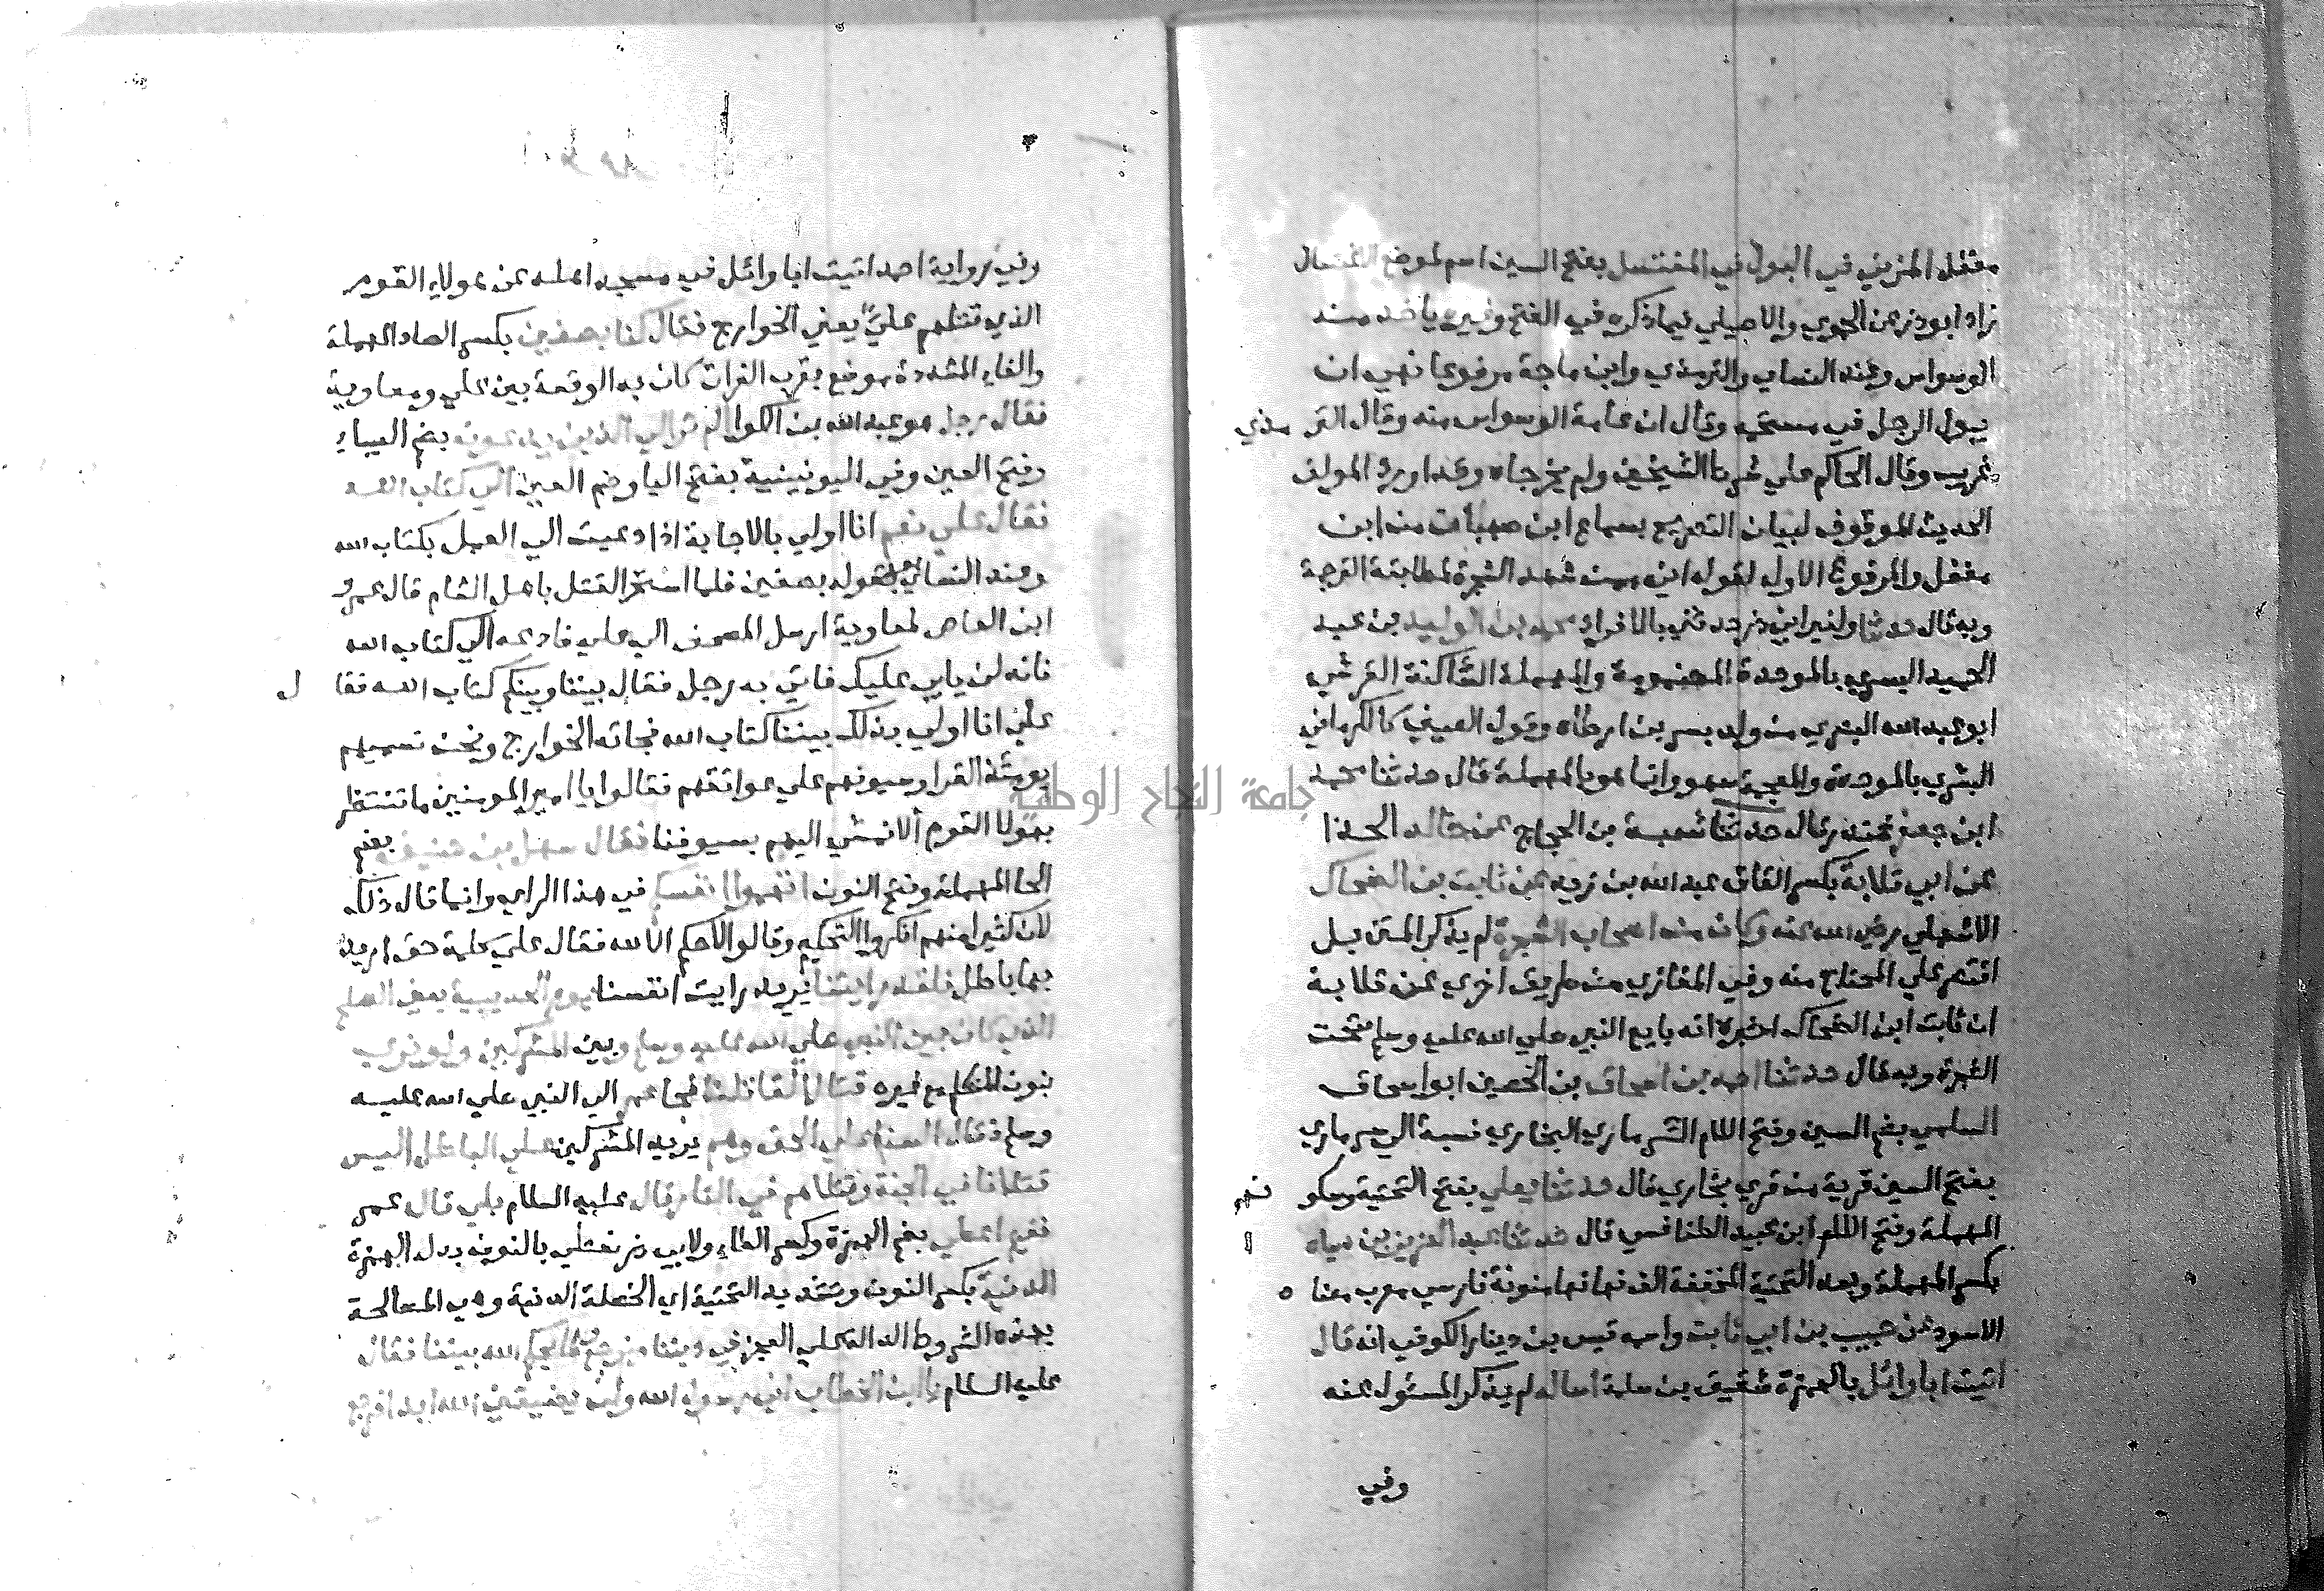 مغفل المزني في البول في المغتسل بفتح السين اسم لموضع الاغتسال
زاد ابوذر عن الحموي والاصيلي فيما ذكره في الفتح وغيره ياخذ منه
الوسواس وعند النساي والترمذي وابن ماجة مرفوعا نهي ان
يبول الرجل في مستحمه وقال ان عامة الوسواس منه وقال الترمذي
غريب وقال الحاكم علي شرط الشيخين ولم يخرجاه وقد اورد المولف
الحديث الموقوف لبيان التصريح بسماع ابن صهبان من ابن
مغفل والمرفوع الاول لقوله اني ممن شهد الشجرة لمطابقة الترجمة
وبه قال حدثنا ولغير ابي ذر حدثني بالافراد محمد بن الوليد بن عبد
الحميد البسري بالموحدة المضمومة والمهملة الساكنة القرشي
ابو عبد الله البصري من ولد بسر بن ارطاه وقول العيني كالكرماني
البشري بالموحدة والمعجمة سهو وانما هو بالمهملة قال حدثنا محمد
ابن جعفر غندر قال حدثنا شعبة بن الحجاج عن خالد الحذا
عن ابي قلابة بكسر القاف عبد الله بن زيد عن ثابت بن الضحاك
الاشهلي رضي الله عنه وكان من اصحاب الشجرة لم يذكر المتن بل
اقتصر علي المحتاج منه وفي المغازي من طريق اخري عن قلابة
ان ثابت ابن الضحاك اخبره انه بايع النبي صلي الله عليه وسلم تحت
الشجرة وبه قال حدثنا احمد بن اسحاق بن الحصين ابو اسحاق
السلمي بضم السين وفتح اللام السرماري البخاري نسبة الي سرماري
بفتح السين قرية من قري بخاري قال حدثنا يعلي بفتح التحتية وسكون
المهملة وفتح اللام ابن عبيد الطنافسي قال حدثنا عبد العزيز بن سياه
بكسر المهملة وبعد التحتية المخففة الف فها منونة فارسي معرب معناه
الاسود عن حبيب بن ابي ثابت واسمه قيس بن دينار الكوفي انه قال
اتيت ابا وائل بالهمزة شقيق بن سلمة اساله لم يذكر المسئول عنه
وفي
وفي رواية احمد اتيت ابا وائل في مسجد اهله عن هولاء القوم
الذي قتلهم علي يعني الخوارج فقال كنا بصفين بكسر الصاد المهملة
والفاء المشددة موضع بقرب الفرات كان به الوقعة بين علي ومعاوية
فقال رجل هو عبد الله بن الكوا الم تر الي الذين يدعون بضم الياء
وفتح العين وفي اليونينية بفتح اليا وضم العين الي كتاب الله
فقال علي نعم انا اولي بالاجابة اذا دعيت الي العمل بكتاب الله
وعند النساي بعد قوله بصفين فلما استحر القتل باهل الشام قال عمرو
ابن العاص لمعاوية ارسل المصحف الي علي فادعه الي كتاب الله
فانه لن يابي عليك فاتي به رجل فقال بيننا وبينكم كتاب الله فقال
علي انا اولي بذلك بيننا كتاب الله فجاته الخوارج ونحن نسميهم
يومئذ القرا وسيوفهم علي عواتقهم فقالوا يا امير المومنين ما تنتظر
بهولا القوم الا نمشي اليهم بسيوفنا فقال سهل بن حنيف بضم
الحا المهملة وفتح النون اتهموا انفسكم في هذا الراي وانما قال ذلك
لان كثيرا منهم انكروا التحكيم وقالوا لا حكم الا لله فقال علي كلمة حق اريد
بها باطل فلقد رايتنا يريد رايت انفسنا يوم الحديبية يعني الصلح
الذي كان بين النبي صلي الله عليه وسلم وبين المشركين ولو نري
بنون المتكلم مع غيره قتالا لقاتلنا فجا عمر الي النبي صلي الله عليه
وسلم فقال السنا علي الحق وهم يريد المشركين علي الباطل اليس
قتلانا في الجنة وقتلاهم في النار قال عليه السلام بلي قال عمر
ففيم اعطي بضم الهمزة وكسر الطاء ولابي ذر نعطي بالنون بدل الهمزة
الدنية بكسر النون وتشديد التحتية اي الخصلة الدنية وهي المصالحة
بهذه الشروط الدالة علي العجز في ديننا ونرجع ولما يحكم الله بيننا فقال
عليه السلام يا ابن الخطاب اني رسول الله ولن يضيعني الله ابدا فرجع
جامعة النجاح الوطنية